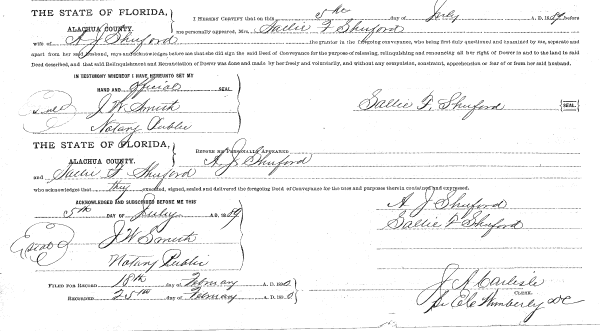 THE STATE OF FLORIDA,
ALACHUA COUNTY.
I HEREBY CERTIFY that on this 5th day of July A. D. 1889, before
me personally appeared, Mrs. Sallie F Shuford
wife of A J Shuford the grantor in the foregoing conveyance, who being first duly questioned and examined by me, separate and
apart from her said husband, says and acknowledges before me that she did sign the said Deed of Conveyance for the purpose of releasing, relinquishing and renouncing all her right of Dower in and to the land in said
Deed described, and that said Relinquishment and Renunciation of Dower was done and made by her freely and voluntarily, and without any compulsion, constraint, apprehension or fear of or from her said husband.
IN TESTIMONY WHEREOF I HAVE HEREUNTO SET MY
HAND AND official SEAL.
seal J. W Smith
Notary Public
Sallie F. Shuford SEAL
THE STATE OF FLORIDA,
ALACHUA COUNTY.
BEFORE ME PERSONALLY APPEARED A. J. Shuford
and Sallie F Shuford
who acknowledges that they executed, signed, sealed and delivered the foregoing Deed of Conveyance for the uses and purposes therein contained and expressed.
ACKNOWLEDGED AND SUBSCRIBED BEFORE ME THIS
5th DAY OF July A.D. 1889
A J Shuford
Sallie F Shuford
seal J W Smith
Notary Public
FILED FOR RECORD 18th day of February A. D. 1890
RECORDED 25th day of February A. D. 1890
J A Carlisle
CLERK.
Wimberly DC